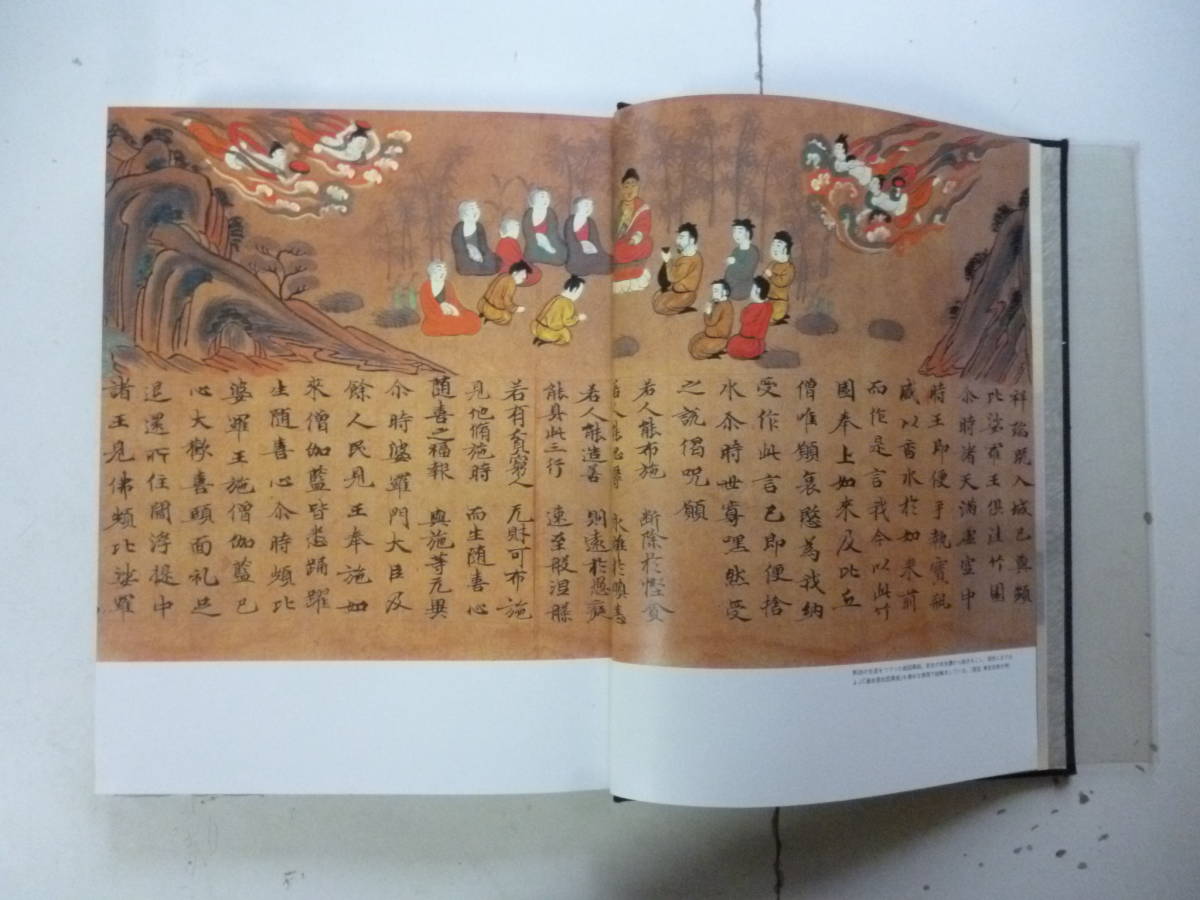 祥瑞既入城已與頻
比娑羅王俱往竹園
尒時諸天滿虛空中
時王即便手執寶瓶
盛以香水於如來前
而作是言我今以此竹
園奉上如來及比丘
僧唯願哀愍為我納
受作此言已即便捨
水尒時世尊嘿然受
之說偈呪願
若人能布施 斷除於慳貪
若人能忍辱 永離於瞋恚
若人能造善 則遠於愚癡
能具此三行 速至般涅槃
若有貧窮人 无財可布施
見他脩施時 而生随喜心
随喜之福報 與施等无異
尒時婆羅門大臣及
餘人民見王奉施如
來僧伽藍皆悉踊躍
生随喜心尒時頻比
婆羅王施僧伽藍已
心大歡喜頭面礼足
退還所住閻浮提中
諸王見佛頻比娑羅